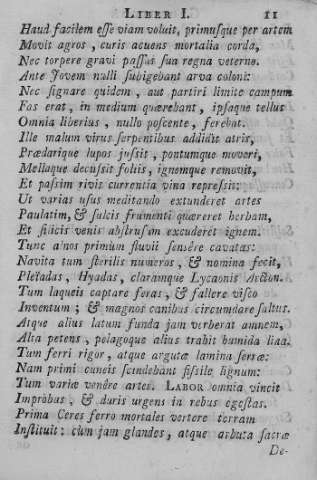 LIBER I. 11
Haud facilem esse viam voluit, primusque per artem
Movit agros, curis acuens mortalia corda,
Nec torpere gravi passus sua regna veterno.
Ante Jovem nulli subigebant arva coloni:
Nec signare quidem, aut partiri limite campum
Fas erat, in medium quærebant, ipsaque tellus
Omnia liberius, nullo poscente, ferebat.
Ille malum virus serpentibus addidit atris,
Prædarique lupos jussit, pontumque moveri,
Mellaque decussit foliis, ignemque removit,
Et passim rivis currentia vina repressit:
Ut varias usus meditando extunderet artes
Paulatim, & sulcis frumenti quæreret herbam,
Et silicis venis abstrusum excuderet ignem.
Tunc alnos primum fluvii sensêre cavatas:
Navita tum stellis numeros, & nomina fecit,
Pleïadas, Hyadas, claramque Lycaonis Arcton.
Tum laqueis captare feras, & fallere visco
Inventum; & magnos canibus circumdare saltus.
Atque alius latum funda jam verberat amnem,
Alta petens, pelagoque alius trahit humida lina.
Tum ferri rigor, atque argutæ lamina serræ:
Nam primi cuneis scindebant fissile lignum:
Tum variæ venêre artes. LABOR omnia vincit
Improbus, & duris urgens in rebus egestas.
Prima Ceres ferro mortales vertere terram
Instituit: cum jam glandes, atque arbuta sacræ
De-